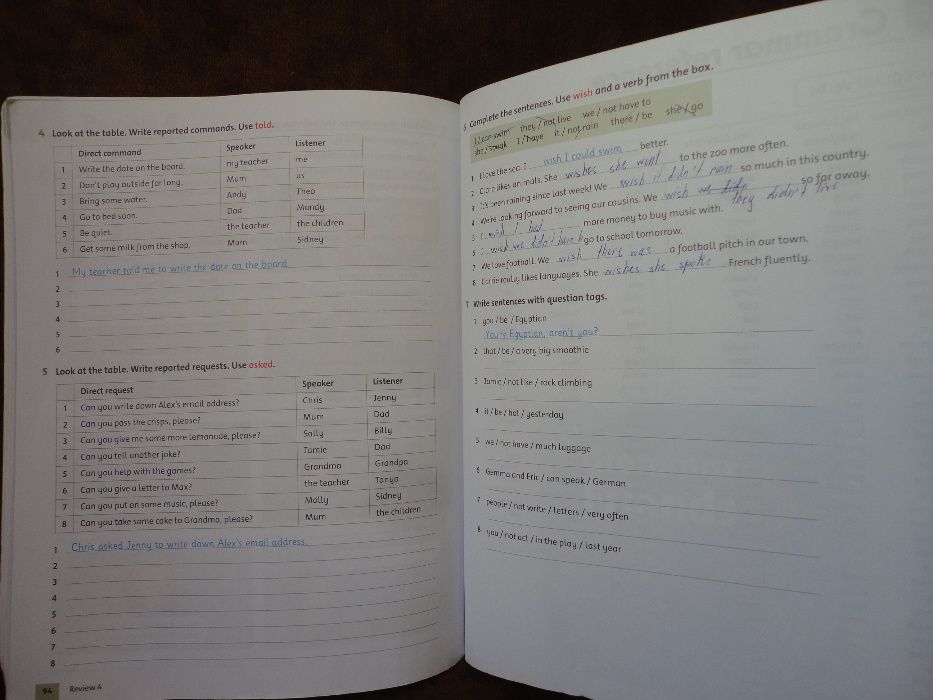 4 Look at the table. Write reported commands. Use told.
Direct command Speaker Listener
1 Write the date on the board. my teacher me
2 Don't play outside for long. Mum us
3 Bring some water. Andy Theo
4 Go to bed soon. Dad Mandy
5 Be quiet. the teacher the children
6 Get some milk from the shop. Mum Sidney
1 My teacher told me to write the date on the board.
2
3
4
5
6
5 Look at the table. Write reported requests. Use asked.
Direct request Speaker Listener
1 Can you write down Alex's email address? Chris Jenny
2 Can you pass the crisps, please? Mum Dad
3 Can you give me some more lemonade, please? Sally Billy
4 Can you tell another joke? Jamie Dad
5 Can you help with the games? Grandma Grandpa
6 Can you give a letter to Max? the teacher Tanya
7 Can you put on some music, please? Molly Sidney
8 Can you take some cake to Grandma, please? Mum the children
1 Chris asked Jenny to write down Alex's email address.
2
3
4
5
6
7
8
94 Review 4
Complete the sentences. Use wish and a verb from the box.
I / can swim they / not live we / not have to she / go
she / speak I / have it / not rain there / be
1 I love the sea. I wish I could swim better.
2 Clare likes animals. She wishes she went to the zoo more often.
3 It's been raining since last week! We wish it didn't rain so much in this country.
4 We're looking forward to seeing our cousins. We wish they didn't live so far away.
5 I wish I had more money to buy music with.
6 wish we didn't have to go to school tomorrow.
7 We love football. We wish there was a football pitch in our town.
8 Carrie really likes languages. She wishes she spoke French fluently.
Write sentences with question tags.
1 you / be / Egyptian
You're Egyptian, aren't you?
2 that / be / a very big smoothie
3 Jamie / not like / rock climbing
4 it / be / hot / yesterday
5 we / not have / much luggage
6 Gemma and Eric / can speak / German
7 people / not write / letters / very often
8 you / not act / in the play / last year